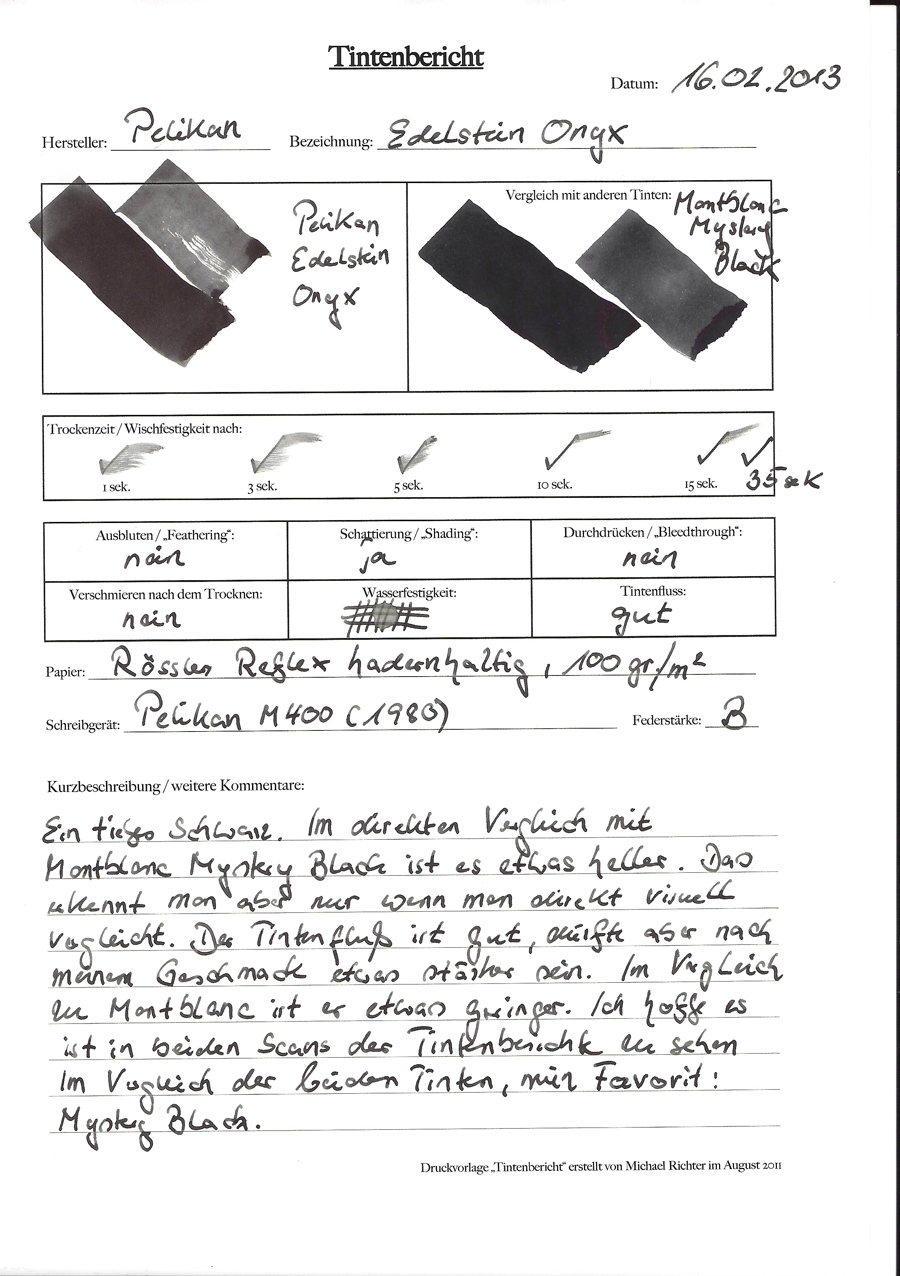 Tintenbericht
Datum: 16.02.2013
Hersteller: Pelikan Bezeichnung: Edelstein Onyx
Pelikan
Edelstein
Onyx
Vergleich mit anderen Tinten: Montblanc
Mystery
Black
Trockenzeit / Wischfestigkeit nach:
1 sek. 3 sek. 5 sek. 10 sek. 15 sek. 35 sek
Ausbluten / „Feathering“: Schattierung / „Shading“: Durchdrücken / „Bleedthrough“:
nein ja nein
Verschmieren nach dem Trocknen: Wasserfestigkeit: Tintenfluss:
nein gut
Papier: Rössler Reflex hadernhaltig, 100 gr./m²
Schreibgerät: Pelikan M400 (1980) Federstärke: B
Kurzbeschreibung / weitere Kommentare:
Ein tiefes Schwarz. Im direkten Vergleich mit
Montblanc Mystery Black ist es etwas heller. Das
erkennt man aber nur wenn man direkt visuell
vergleicht. Der Tintenfluß ist gut, dürfte aber nach
meinem Geschmack etwas stärker sein. Im Vergleich
zu Montblanc ist er etwas geringer. Ich hoffe es
ist in beiden Scans der Tintenberichte zu sehen
Im Vergleich der beiden Tinten, mein Favorit:
Mystery Black.
Druckvorlage „Tintenbericht“ erstellt von Michael Richter im August 2011